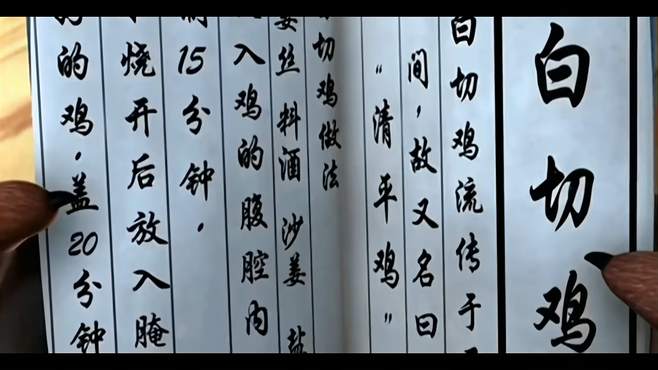 白切鸡
白切鸡流传于
间，故又名曰
“清平鸡”
切鸡做法
姜丝 料酒 沙姜 盐
入鸡的腹腔内
15分钟，
烧开后放入腌
的鸡，盖20分钟